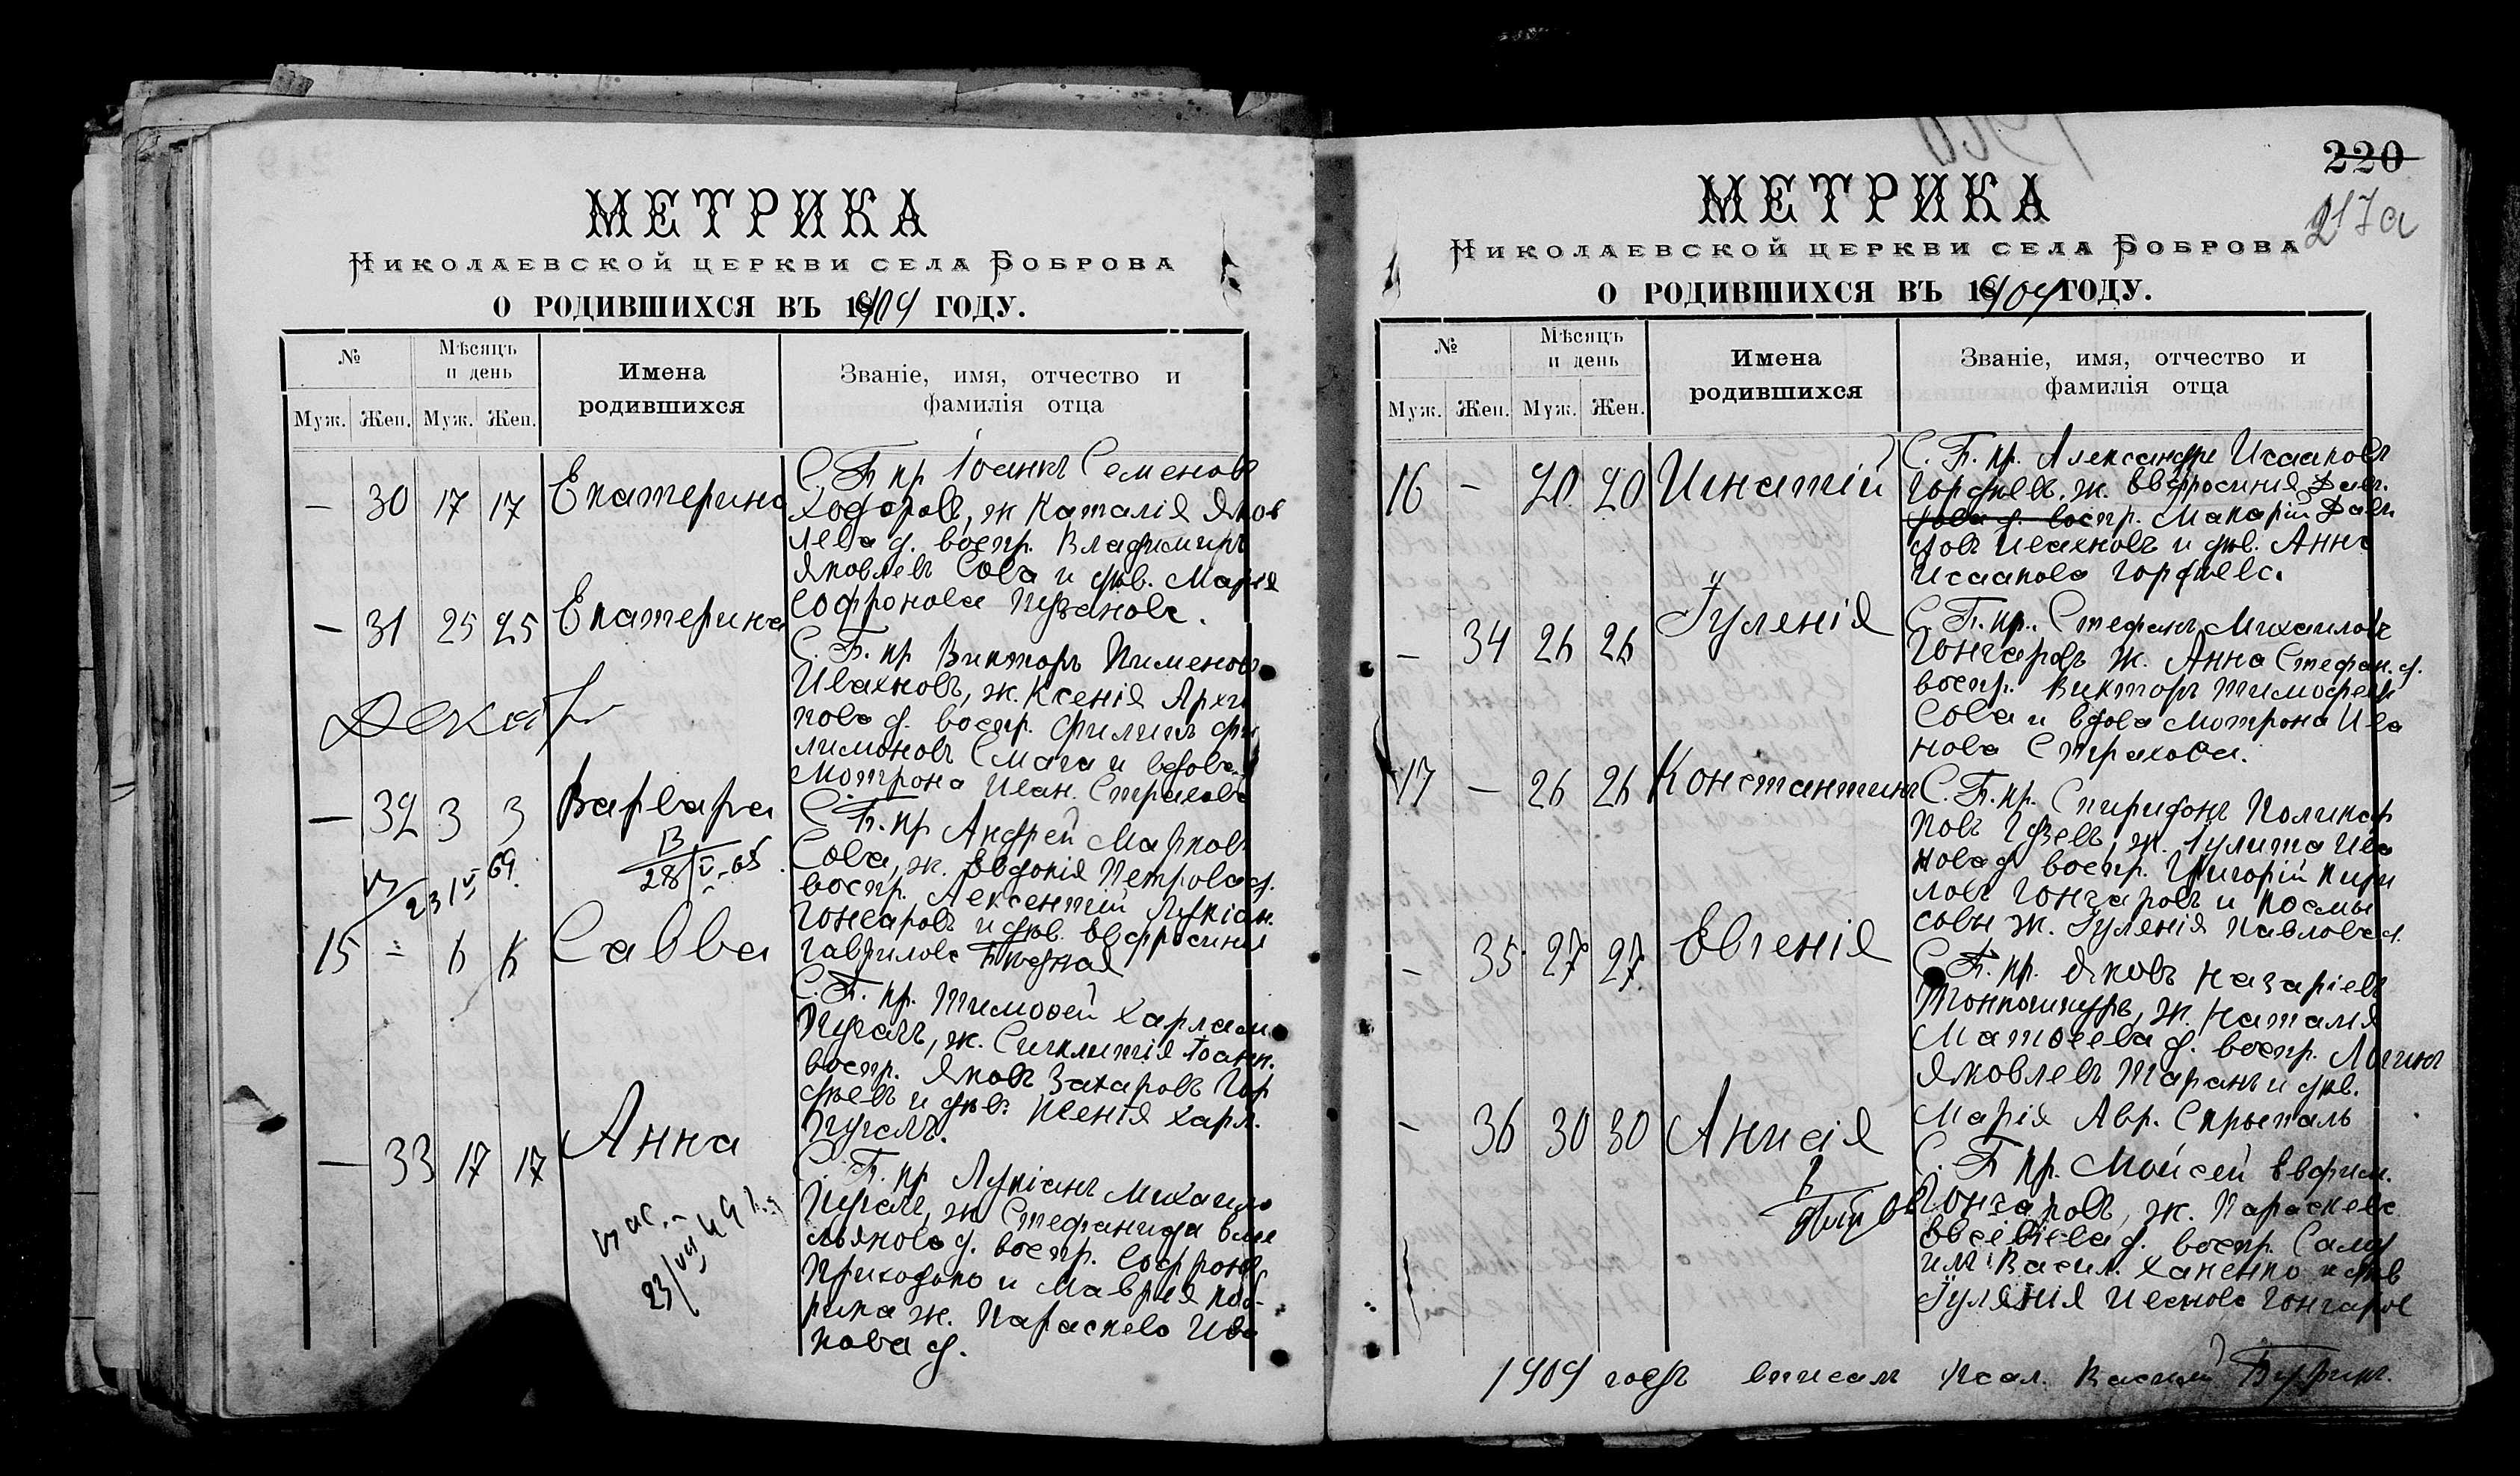 МЕТРИКА
НИКОЛАЕВСКОЙ ЦЕРКВИ СЕЛА БОБРОВА
О РОДИВШИХСЯ ВЪ 1904 ГОДУ.
№
Мѣсяцъ и день
Имена родившихся
Званіе, имя, отчество и фамилія отца
Муж. Жен. Муж. Жен.
— 30 17 17 Екатерина
С. Б. кр Іоаннъ Семеновъ
Ходоровъ, ж Наталія Яков
лева д. воспр. Владимиръ
Яковлевъ Сова и дѣв. Марія
Софронова Пузанова.
— 31 25 25 Екатерина
С. Б. кр Викторъ Пименовъ
Ивахновъ, ж. Ксенія Архи
пова д. воспр. Филипъ Фи
лимоновъ Смага и вдова
Мотрона Иван. Страхова
Декабр
— 32 3 3 Варвара
В
28/V-65
С. Б. кр Андрей Марковъ
Сова, ж. Евдокія Петрова д.
воспр. Авксентій Лукіан.
Гончаровъ и дѣв. Евфросинія
Гаврилова Бѣдная
15 - 6 6 Савва
С. Б. кр. Тимофей Харламп
Пугачъ, ж. Сигклитія Іоанн.
воспр. Яковъ Захаровъ Гор
дѣевъ и дѣв. Ксенія Харл.
Пугачъ.
— 33 17 17 Анна
С. Б. кр Лукіанъ Михаило
Пугачъ, ж Стефанида Еме
льянова д. воспр. Софронъ
Приходько и Мавры
ж. Параскева Ива
нова д.
220
217а
МЕТРИКА
НИКОЛАЕВСКОЙ ЦЕРКВИ СЕЛА БОБРОВА
О РОДИВШИХСЯ ВЪ 1904 ГОДУ.
№
Мѣсяцъ и день
Имена родившихся
Званіе, имя, отчество и фамилія отца
Муж. Жен. Муж. Жен.
16 — 20 20 Игнатій
С. Б. кр. Александръ Исааковъ
Гордѣевъ, ж. Евфросинія Дави.
дова д. воспр. Макарій Дави
довъ Ивахновъ и дѣв. Анна
Исаакова Гордѣева.
— 34 26 26 Іуленія
С. Б. кр. Стефанъ Михаиловъ
Гончаровъ ж. Анна Стефан. д.
воспр. Викторъ Тимофеевъ
Сова и вдова Мотрона Ива
нова Страхова.
17 — 26 26 Константинъ
С. Б. кр. Спиридонъ Поликар
повъ Гузевъ, ж. Іулита Ива
нова д. воспр. Григорій Кири
ловъ Гончаровъ и Космы
совы ж. Іуленія Павлова д.
— 35 27 27 Евгенія
С. Б. кр. Яковъ Назаріевъ
Тонкошкуръ, ж. Наталія
Матфеева д. воспр. Логинъ
Яковлевъ Таранъ и дѣв.
Марія Авр. Скрыпаль
— 36 30 30 Анисія
С. Б кр. Мойсей Евфим.
Гончаровъ, ж. Параскева
Евсевіева д. воспр. Само
илъ Васил. Ханенко и дѣв
Іуліанія Иванова Гончаров
1904 годъ вписалъ Псал. Василій